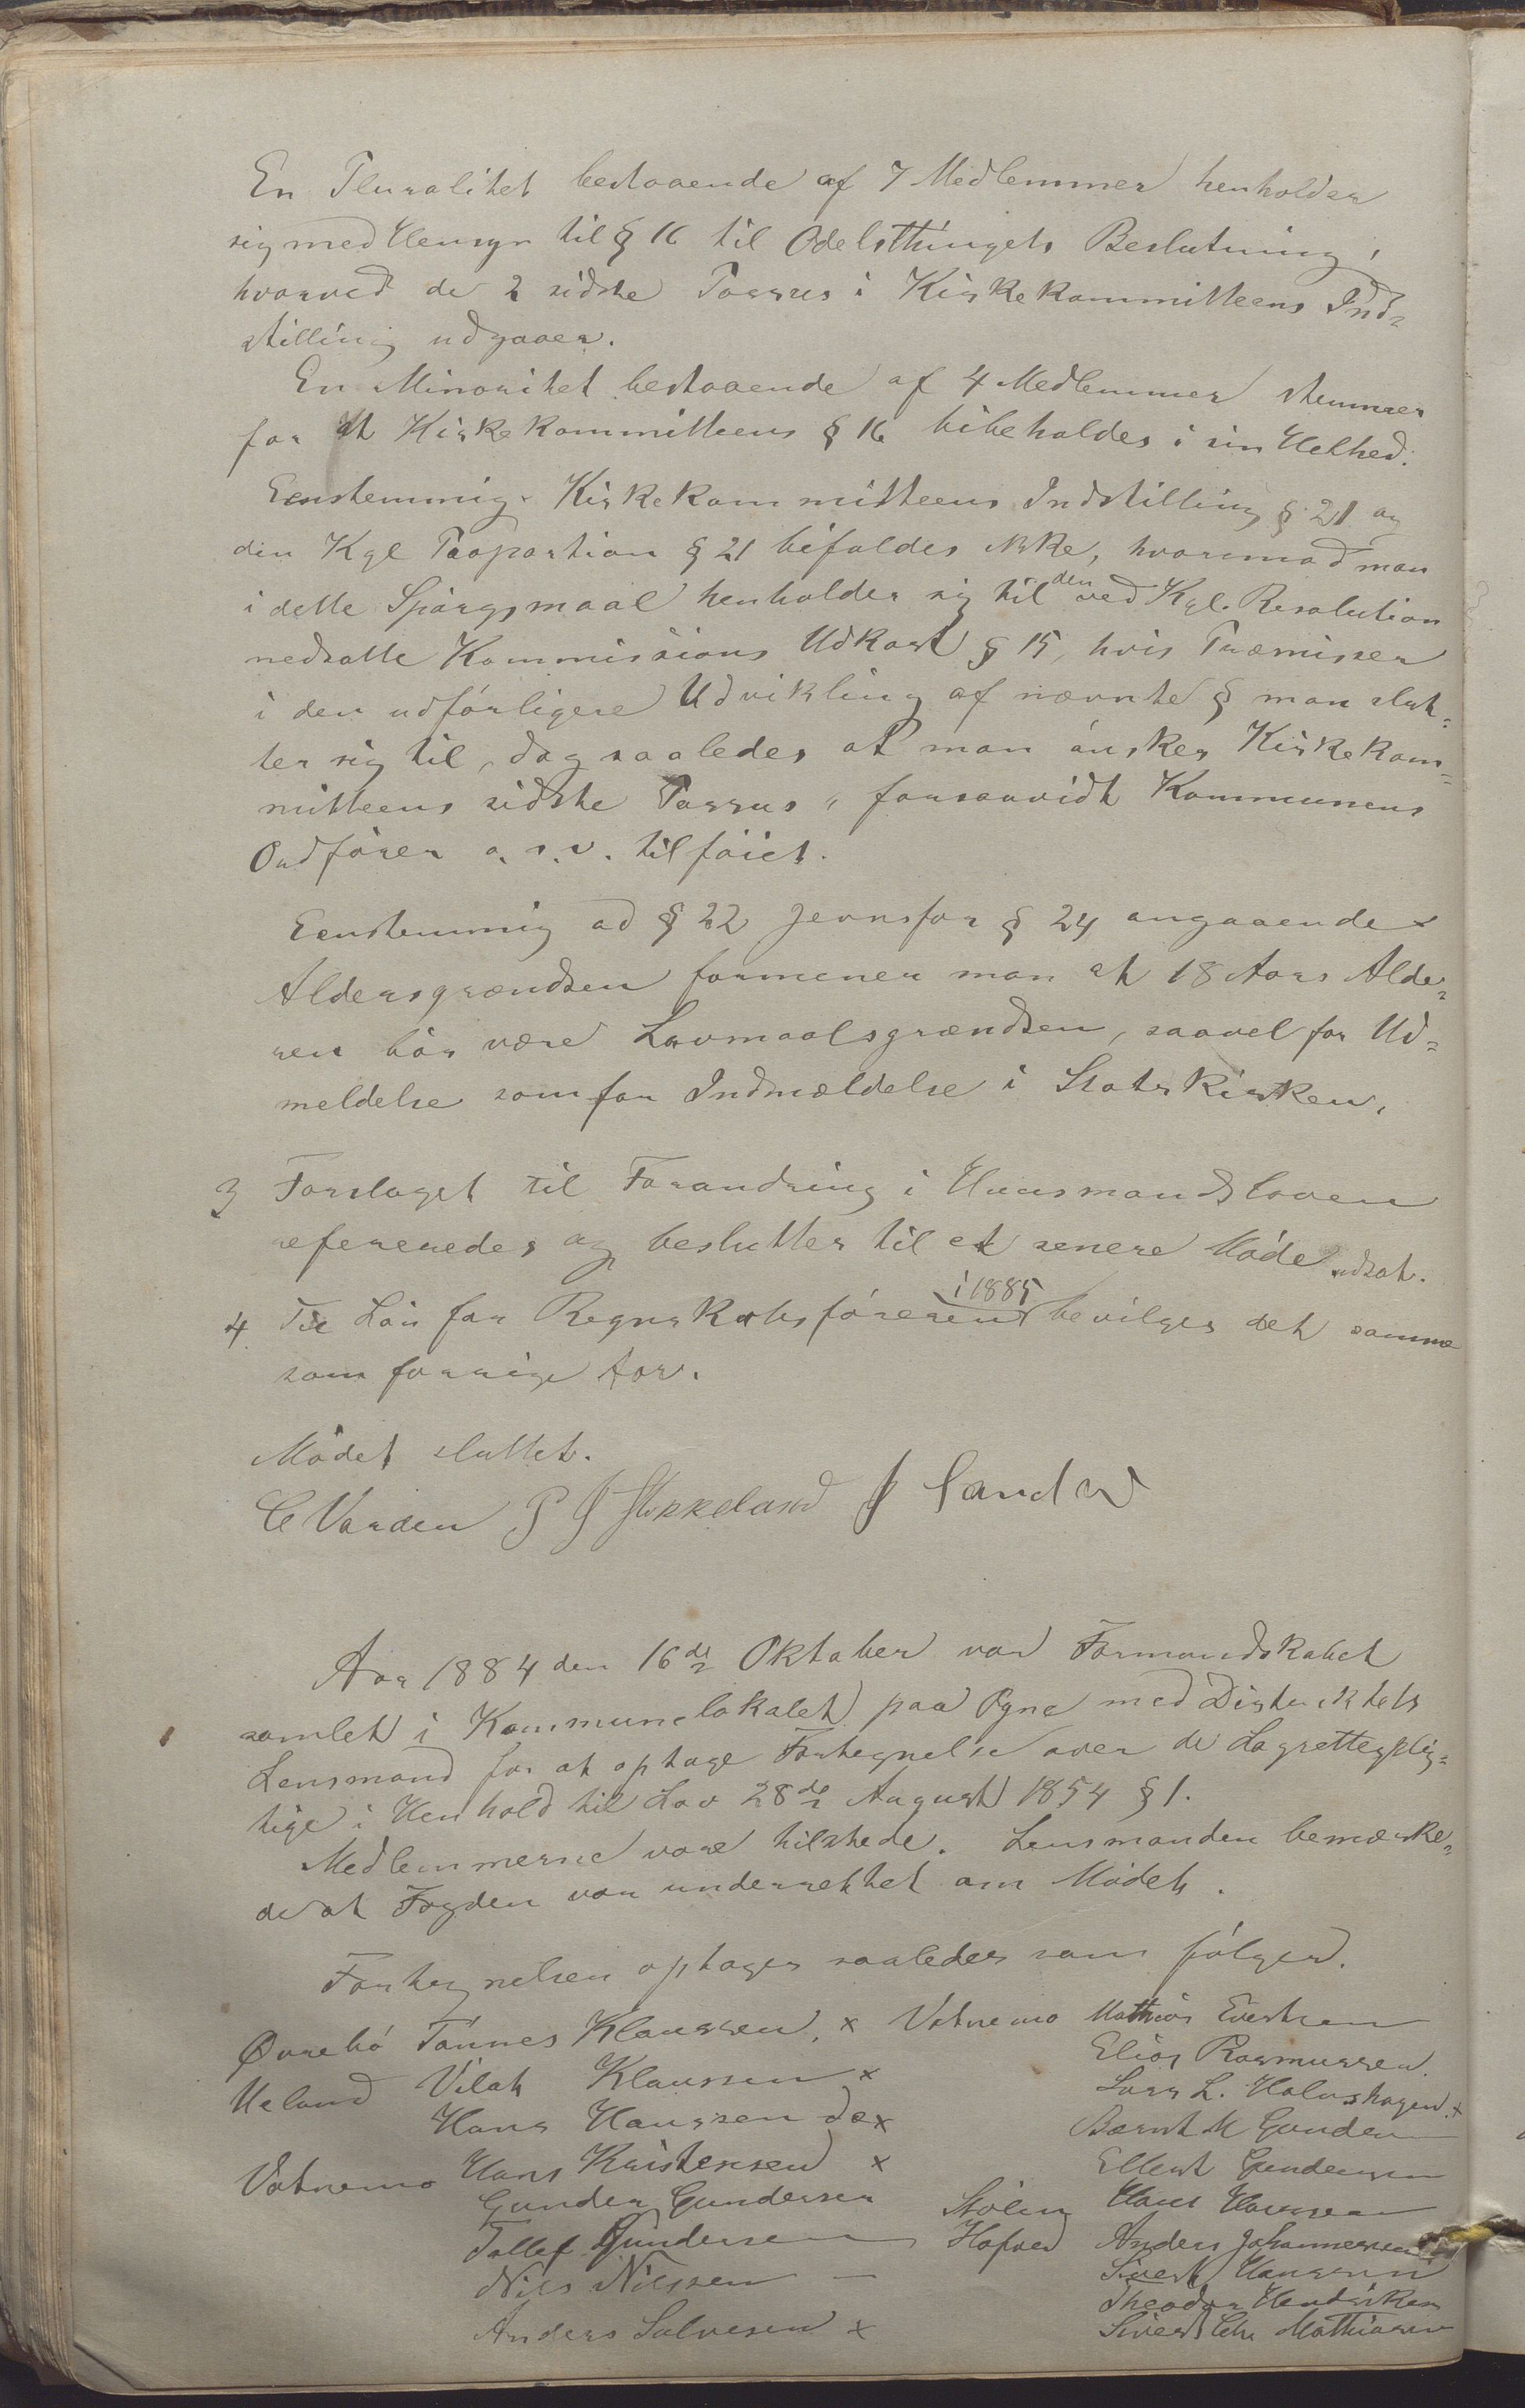 En Pluralitet bestaaende af 7 Medlemmer henholder
sig med Hensyn til § 16 til Odelsthingets Beslutning,
hvorved de 2 sidste Passus i Kirkekommitteens Ind=
stilling udgaaer.
En Minoritet bestaaende af 4 Medlemmer stemmer
for at Kirkekommitteens § 16 bibeholdes i sin Helhed.
Eenstemmig. Kirkekommitteens Indstilling § 21 og
den Kgl Proportion § 21 bifaldes ikke, hvorimod man
i dette Spörgsmaal henholder sig til den ved Kgl. Resolution
nedsatte Kommissions Udkast § 15, hvis Præmisser
i den udförligere Udvikling af nævnte § man slut=
ter sig til, dog saaledes at man önsker Kirkekom=
mitteens sidste Passus, forsaavidt Kommunens
Ordförer o. s. v. tilföiet.
Eenstemmig ad § 22 jevnsfor § 24 angaaende
Aldersgrændsen formener man at 18 Aars Alde=
ren bör være Lavmaalsgrændsen, saavel for Ud=
meldelse som for Indmældelse i Statskirken.
3 Forslaget til Forandring i Huusmandsloven
refereredes og beslutter til et senere Möde udsat.
4 Til Lön for Regnskabsföreren i 1885 bevilges det samme
som forrige Aar.
Mödet sluttet.
C Varden P J Stokkeland J Sandv
Aar 1884 den 16de Oktober var Formandskabet
samlet i Kommunelokalet paa Ogne med Distriktets
Lensmand for at optage Fortegnelse over de Lagrettesplig=
tige i Henhold til Lov 28de August 1854 § 1.
Medlemmerne vare tilstede. Lensmanden bemærke=
de at Fogden var underrettet om Mödet.
Fortegnelsen optages saaledes som fölger.
Øvrebö Tönnes Klaussen. x Vatnemo Mathias Evertsen
Ueland Vilak Klaussen x Elias Rasmussen.
Hans Hanssen do x Lars L. Holmshagen. x
Vatnemo Hans Kristensen x Bernt M Gunder
Gunder Gundersen Ellert Gundersen
Tollef Gundersen Stölen Hans Hanssen
Nils Nilssen — Hofved Anders Johannessen
Anders Salvesen x Sivert Hanssen
Theodor Hendriksen
Sivert Chr Mathiasen